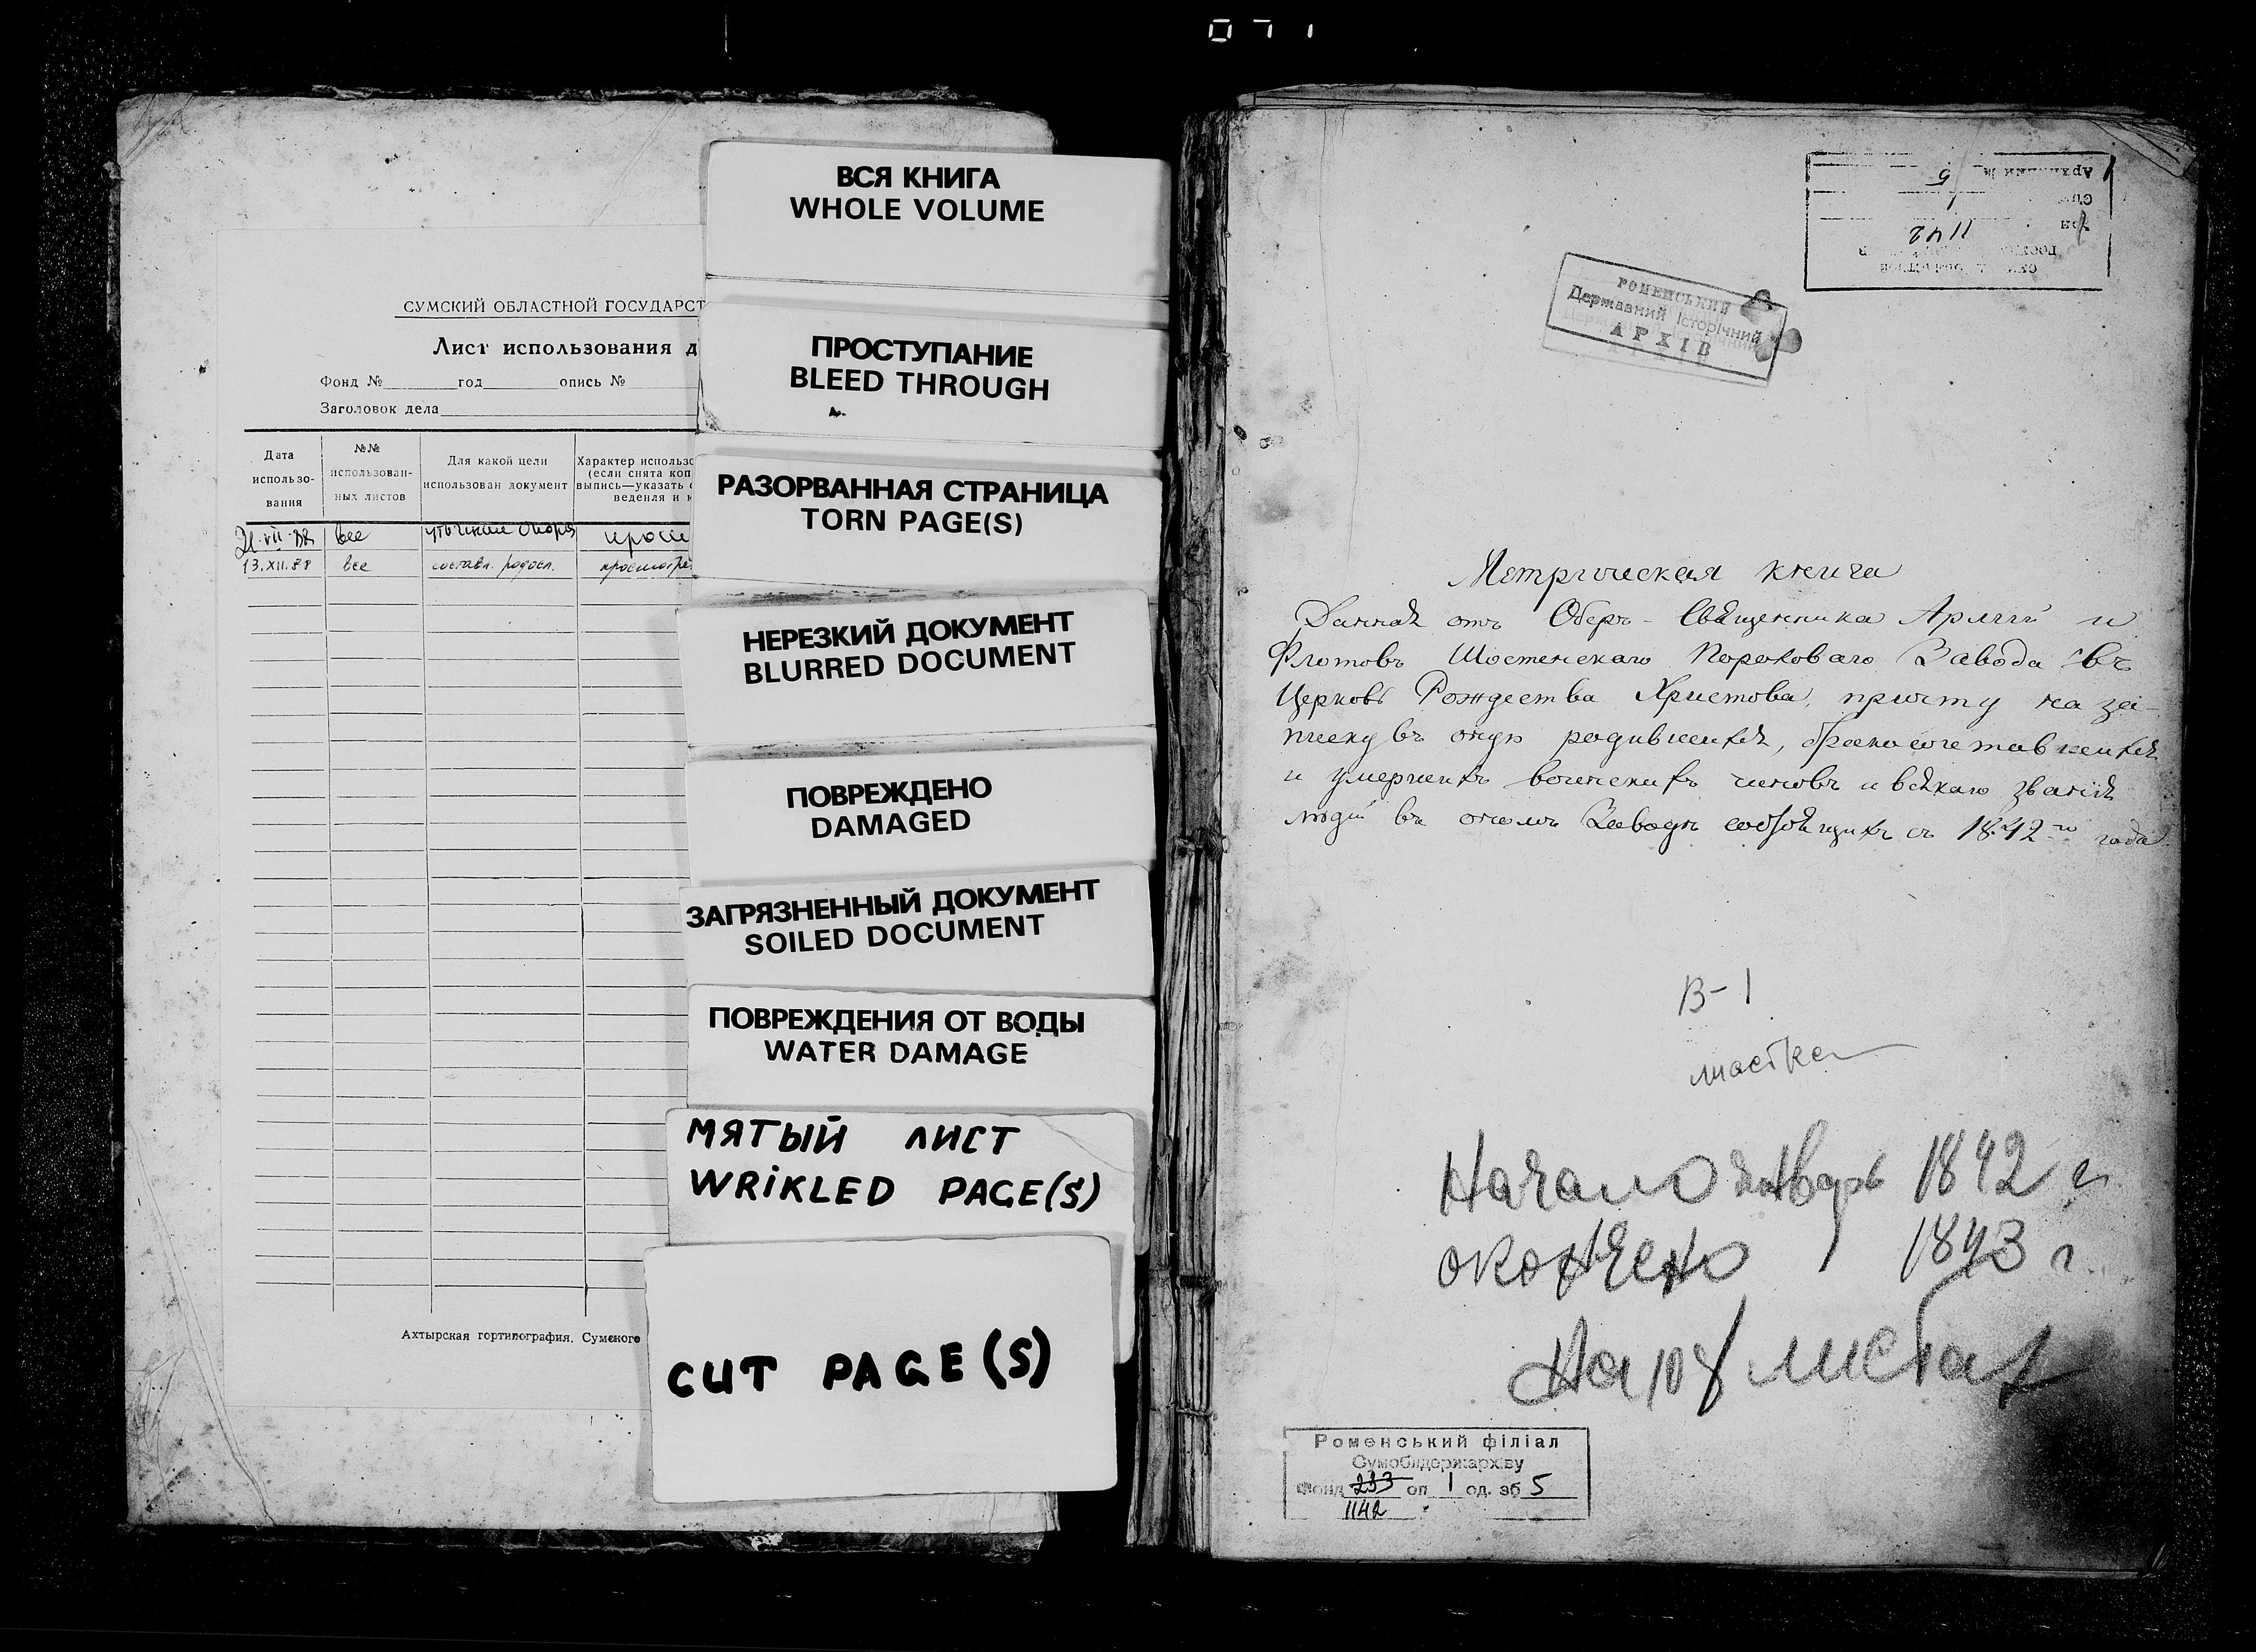 071
СУМСКИЙ ОБЛАСТНОЙ ГОСУДАРСТ
Лист использования д
Фонд № год опись №
Заголовок дела
Дата использо-вания
№№ использован-ных листов
Для какой цели использован документ
Характер использо
(если снята коп
выпись—указать
ведения и
21.VII.88 все
13.XII.88 все составл. родосл. просмотре
Ахтырская гортипография, Сумского
ВСЯ КНИГА
WHOLE VOLUME
ПРОСТУПАНИЕ
BLEED THROUGH
РАЗОРВАННАЯ СТРАНИЦА
TORN PAGE(S)
НЕРЕЗКИЙ ДОКУМЕНТ
BLURRED DOCUMENT
ПОВРЕЖДЕНО
DAMAGED
ЗАГРЯЗНЕННЫЙ ДОКУМЕНТ
SOILED DOCUMENT
ПОВРЕЖДЕНИЯ ОТ ВОДЫ
WATER DAMAGE
МЯТЫЙ ЛИСТ
WRIKLED PAGE(S)
CUT PAGE(S)
Архивный № 5
1
1142
РОМЕНСЬКИЙ
Державний Історічний
АРХІВ
Метрическая книга
Данная отъ Оберъ-Священника Арміи и
Флотовъ Шостенскаго Пороховаго Завода въ
Церковь Рождества Христова, причту на за-
писку въ оную родившихся, бракосочетавшихся
и умершихъ воинскихъ чиновъ и всякаго званія
людей въ ономъ Заводѣ состоящихъ съ 1842-го года
В-1
Начало январь 1842 г.
окончено 1843 г.
На листах
Роменський філіал
Сумоблдержархіву
Фонд 233 оп 1 од. зб 5
1142